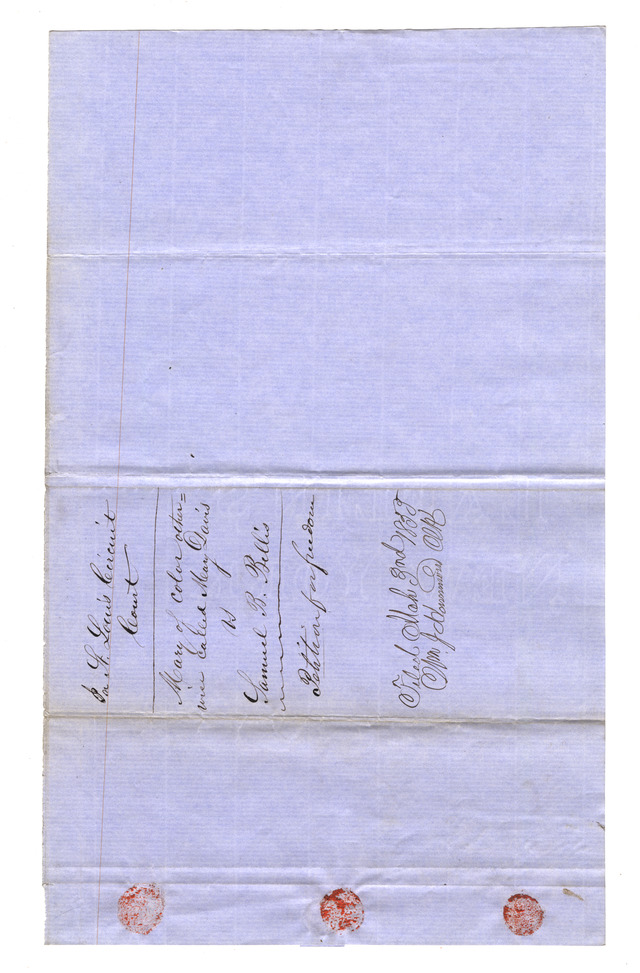 In St. Louis Circuit
Court
Mary of color other=
wise called Mary Davis
vs
Samuel B. Bellis
Petition for freedom
Filed Mch 2nd 1855
Wm J Hammond Clk